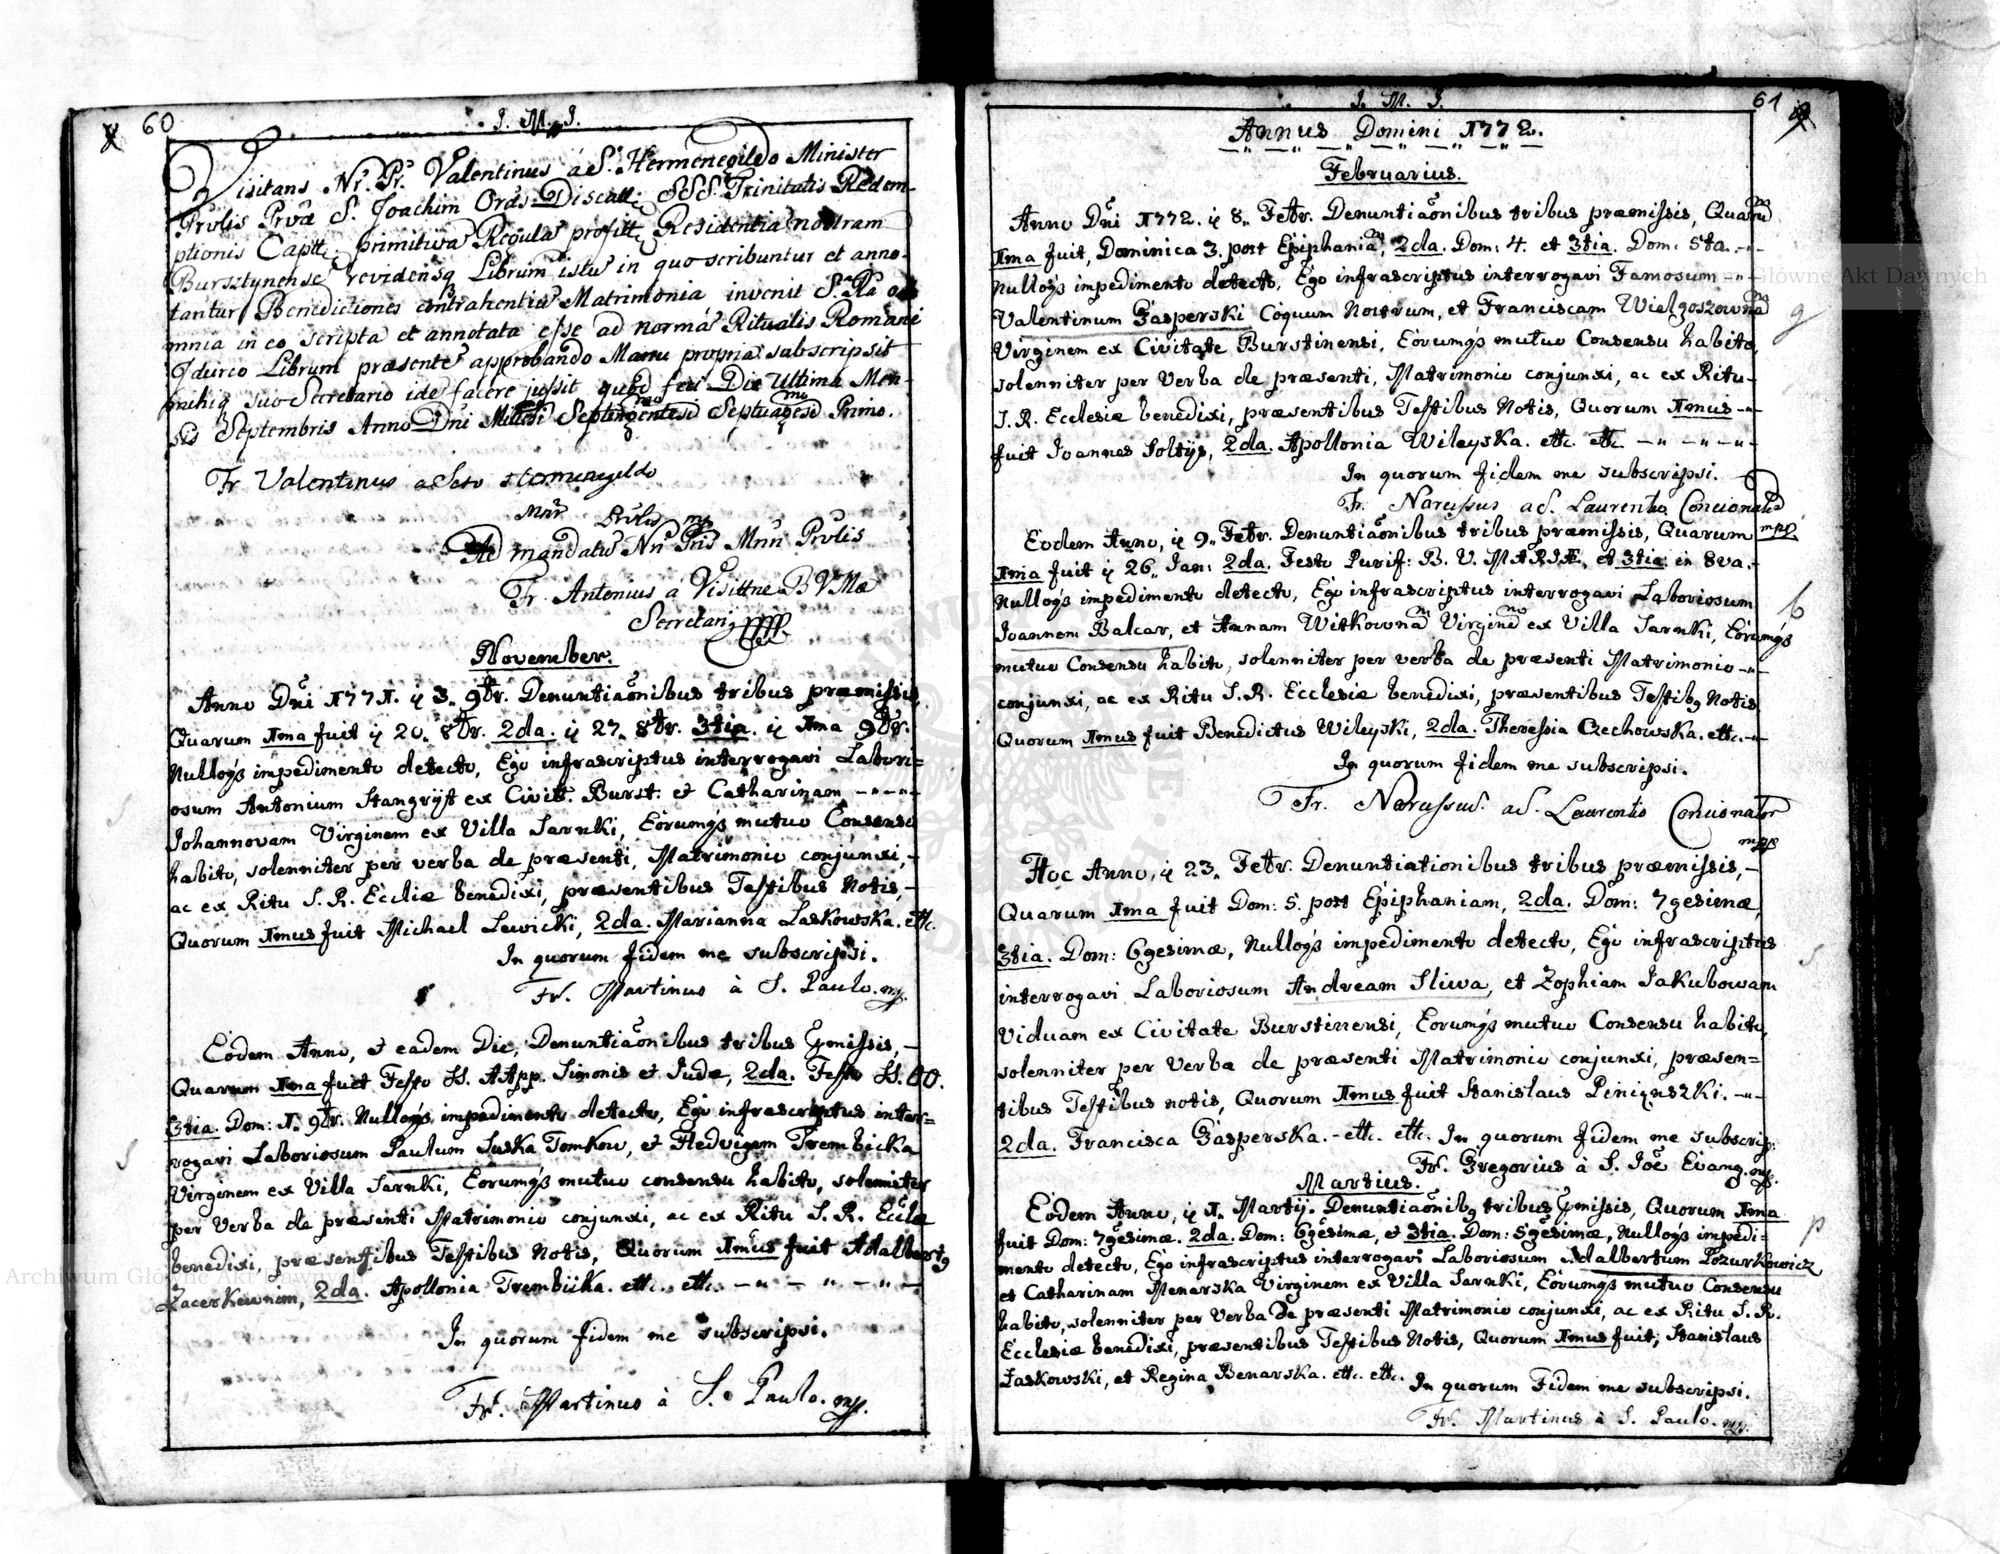 60
J. M. J.
Visitans Nr. Pr. Valentinus a S. Hermenegildo Minister
Prvlis Prvæ S. Joachim Ords Discalti SSS. Trinitatis Redem-
ptionis Captt. primitiva Regula profitt. Residentia nostram
Bursztynense revidensq Librum istu in quo scribuntur et anno-
tantur Benedictiones contrahentiu Matrimonia invenit
omnia in eo scripta et annotata esse ad norma Ritualis Romani
Idcirco Librum præsente approbando Manu propria subscripsit
mihiq suo Secretario ide facere jussit quod feci Die Ultima Men-
sis Septembris Anno Dni Millesi Septingentesi Septuagesi Primo.
Fr Valentinus a Scto Hermenegildo
Mnr Prvlis mp
Ad mandatu Nri Pris Mnri Prvlis
Fr. Antonius à Visittne B V Mæ
Secretari
November.
Anno Dni 1771. ij 3. 9br. Denuntiaonibus tribus præmissis
Quarum 1ma fuit ij 20. 8br. 2da. ij 27. 8br. 3tia. ij 1ma 9br.
Nulloq3 impedimento detecto, Ego infrascriptus interrogavi Labori=
osum Antonium Stangryst ex Civitt. Burst: et Catharinam
Johannovam Virginem ex Villa Sarnki, Eorumq3 mutuo Consensu
habito, solenniter per verba de præsenti, Matrimonio conjunxi,
ac ex Ritu S. R. Eccliæ benedixi, præsentibus Testibus Notis,
Quorum 1mus fuit Michael Lewicki, 2da. Marianna Laskowska. ettc.
In quorum fidem me subscripsi.
Fr. Martinus à S. Paulo. mp.
Eodem Anno, et eadem Die, Denuntiaonibus tribus pmissis,
Quarum 1ma fuit Festo SS. AApp. Simonis et Judæ, 2da. Festo SS. OO.
3tia. Dom: 1. 9br. Nulloq3 impedimento detecto, Ego infrascriptus inter=
rogavi Laboriosum Paulum Suska Tomkow, et Hedvigem Trembicka
Virginem ex Villa Sarnki, Eorumq3 mutuo consensu habito, solenniter
per Verba de præsenti Matrimonio conjunxi, ac ex Ritu S. R. Ecclæ
benedixi, præsentibus Testibus Notis, Quorum 1mus fuit Adalbert9
Zacerkewnem, 2da. Apollonia Trembicka. ettc. ettc.
In quorum fidem me subscripsi.
Fr. Martinus à S. Paulo. mp.
61
J. M. J.
Annus Domini 1772.
Februarius.
Anno Dni 1772. ij 8. Febr. Denuntiaonibus tribus præmissis, Quarum
1ma fuit, Dominica 3. post Epiphania, 2da. Dom: 4. et 3tia. Dom: 5ta.
Nulloq3 impedimento detecto, Ego infrascriptus interrogavi Famosum
Valentinum Gasperski Coquum Nostrum, et Franciscam Wielgoszowna
g
Virginem ex Civitate Burstinensi, Eorumq3 mutuo Consensu habito,
solenniter per Verba de præsenti, Matrimonio conjunxi, ac ex Ritu
S. R. Ecclesiæ benedixi, præsentibus Testibus Notis, Quorum 1mus
fuit Joannes Soltys, 2da. Apollonia Wileyska. ettc. ettc.
In quorum fidem me subscripsi.
Fr. Narcissus a S. Laurentio Concionator
mpp.
Eodem Anno, ij 9. Febr. Denuntiaonibus tribus præmissis, Quarum
1ma fuit ij 26. Jan: 2da. Festo Purif: B. V. MARIÆ, et 3tia in 8va.
Nulloq3 impedimento detecto, Ego infrascriptus interrogavi Laboriosum
b
Joannem Balcar, et Annam Witkowna Virgine ex Villa Sarnki, Eorumq3
mutuo Consensu habito, solenniter per verba de præsenti Matrimonio
conjunxi, ac ex Ritu S. R. Ecclesiæ benedixi, præsentibus Testib9 Notis
Quorum 1mus fuit Benedictus Wileyski, 2da. Theressia Czechowska. ettc.
In quorum fidem me subscripsi.
Fr. Narcissus a S. Laurentio Concionator
mpp
Hoc Anno, ij 23. Febr. Denuntiationibus tribus præmissis,
Quarum 1ma fuit Dom: 5. post Epiphaniam, 2da. Dom: 7gesimæ,
3tia. Dom: 6gesimæ, Nulloq3 impedimento detecto, Ego infrascriptus
interrogavi Laboriosum Andream Sliwa, et Zophiam Jakubowam
Viduam ex Civitate Burstinensi, Eorumq3 mutuo Consensu habito,
solenniter per Verba de præsenti Matrimonio conjunxi, præsen=
tibus Testibus notis, Quorum 1mus fuit Stanislaus Pinignszki.
2da. Francisca Gasperska. ettc. ettc. In quorum fidem me subscrip:
Fr. Gregorius à S. Joe Evang. mp.
Martius.
Eodem Anno, ij 1. Martij. Denuntiaonib9 tribus pmissis, Quorum 1ma
p
fuit Dom: 7gesimæ. 2da. Dom: 6gesimæ, et 3tia. Dom: 5gesimæ, Nulloq3 impedi-
mento detecto, Ego infrascriptus interrogavi Laboriosum Adalbertum Pozurkowicz
et Catharinam Menarska Virginem ex Villa Sarnki, Eorumq3 mutuo Consensu
habito, solenniter per Verba de præsenti Matrimonio conjunxi, ac ex Ritu S. R.
Ecclesiæ benedixi, præsentibus Testibus Notis, Quorum 1mus fuit, Stanislaus
Laskowski, et Regina Benarska. ettc. ettc.
In quorum Fidem me subscripsi.
Fr. Martinus à S. Paulo. mp.
Archiwum Główne Akt Dawnych
Główne Akt Dawnych